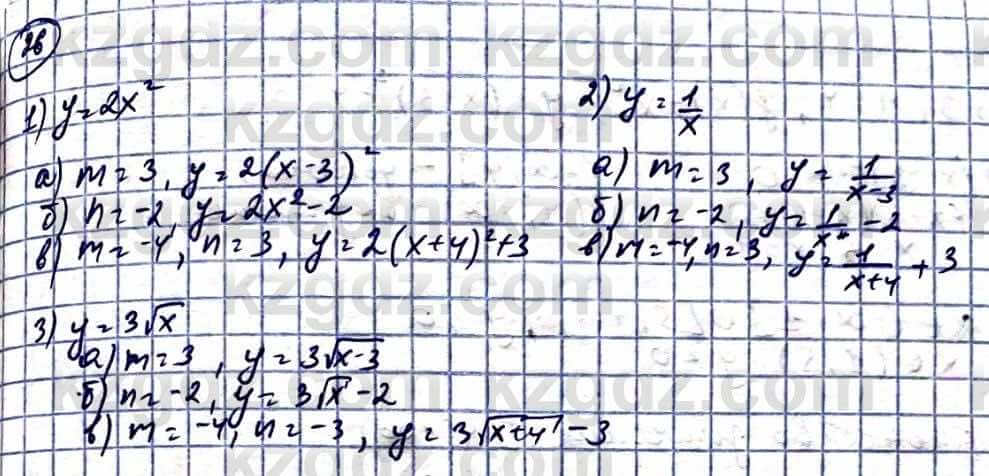 26
1) y = 2x²
а) m = 3, y = 2(x-3)²
б) n = -2, y = 2x² - 2
в) m = -4, n = 3, y = 2(x+4)² + 3
2) y = 1/x
а) m = 3, y = 1/(x-3)
б) n = -2, y = 1/x - 2
в) m = -4, n = 3, y = 1/(x+4) + 3
3) y = 3√x
а) m = 3, y = 3√(x-3)
б) n = -2, y = 3√x - 2
в) m = -4, n = -3, y = 3√(x+4) - 3
kzgdz.com